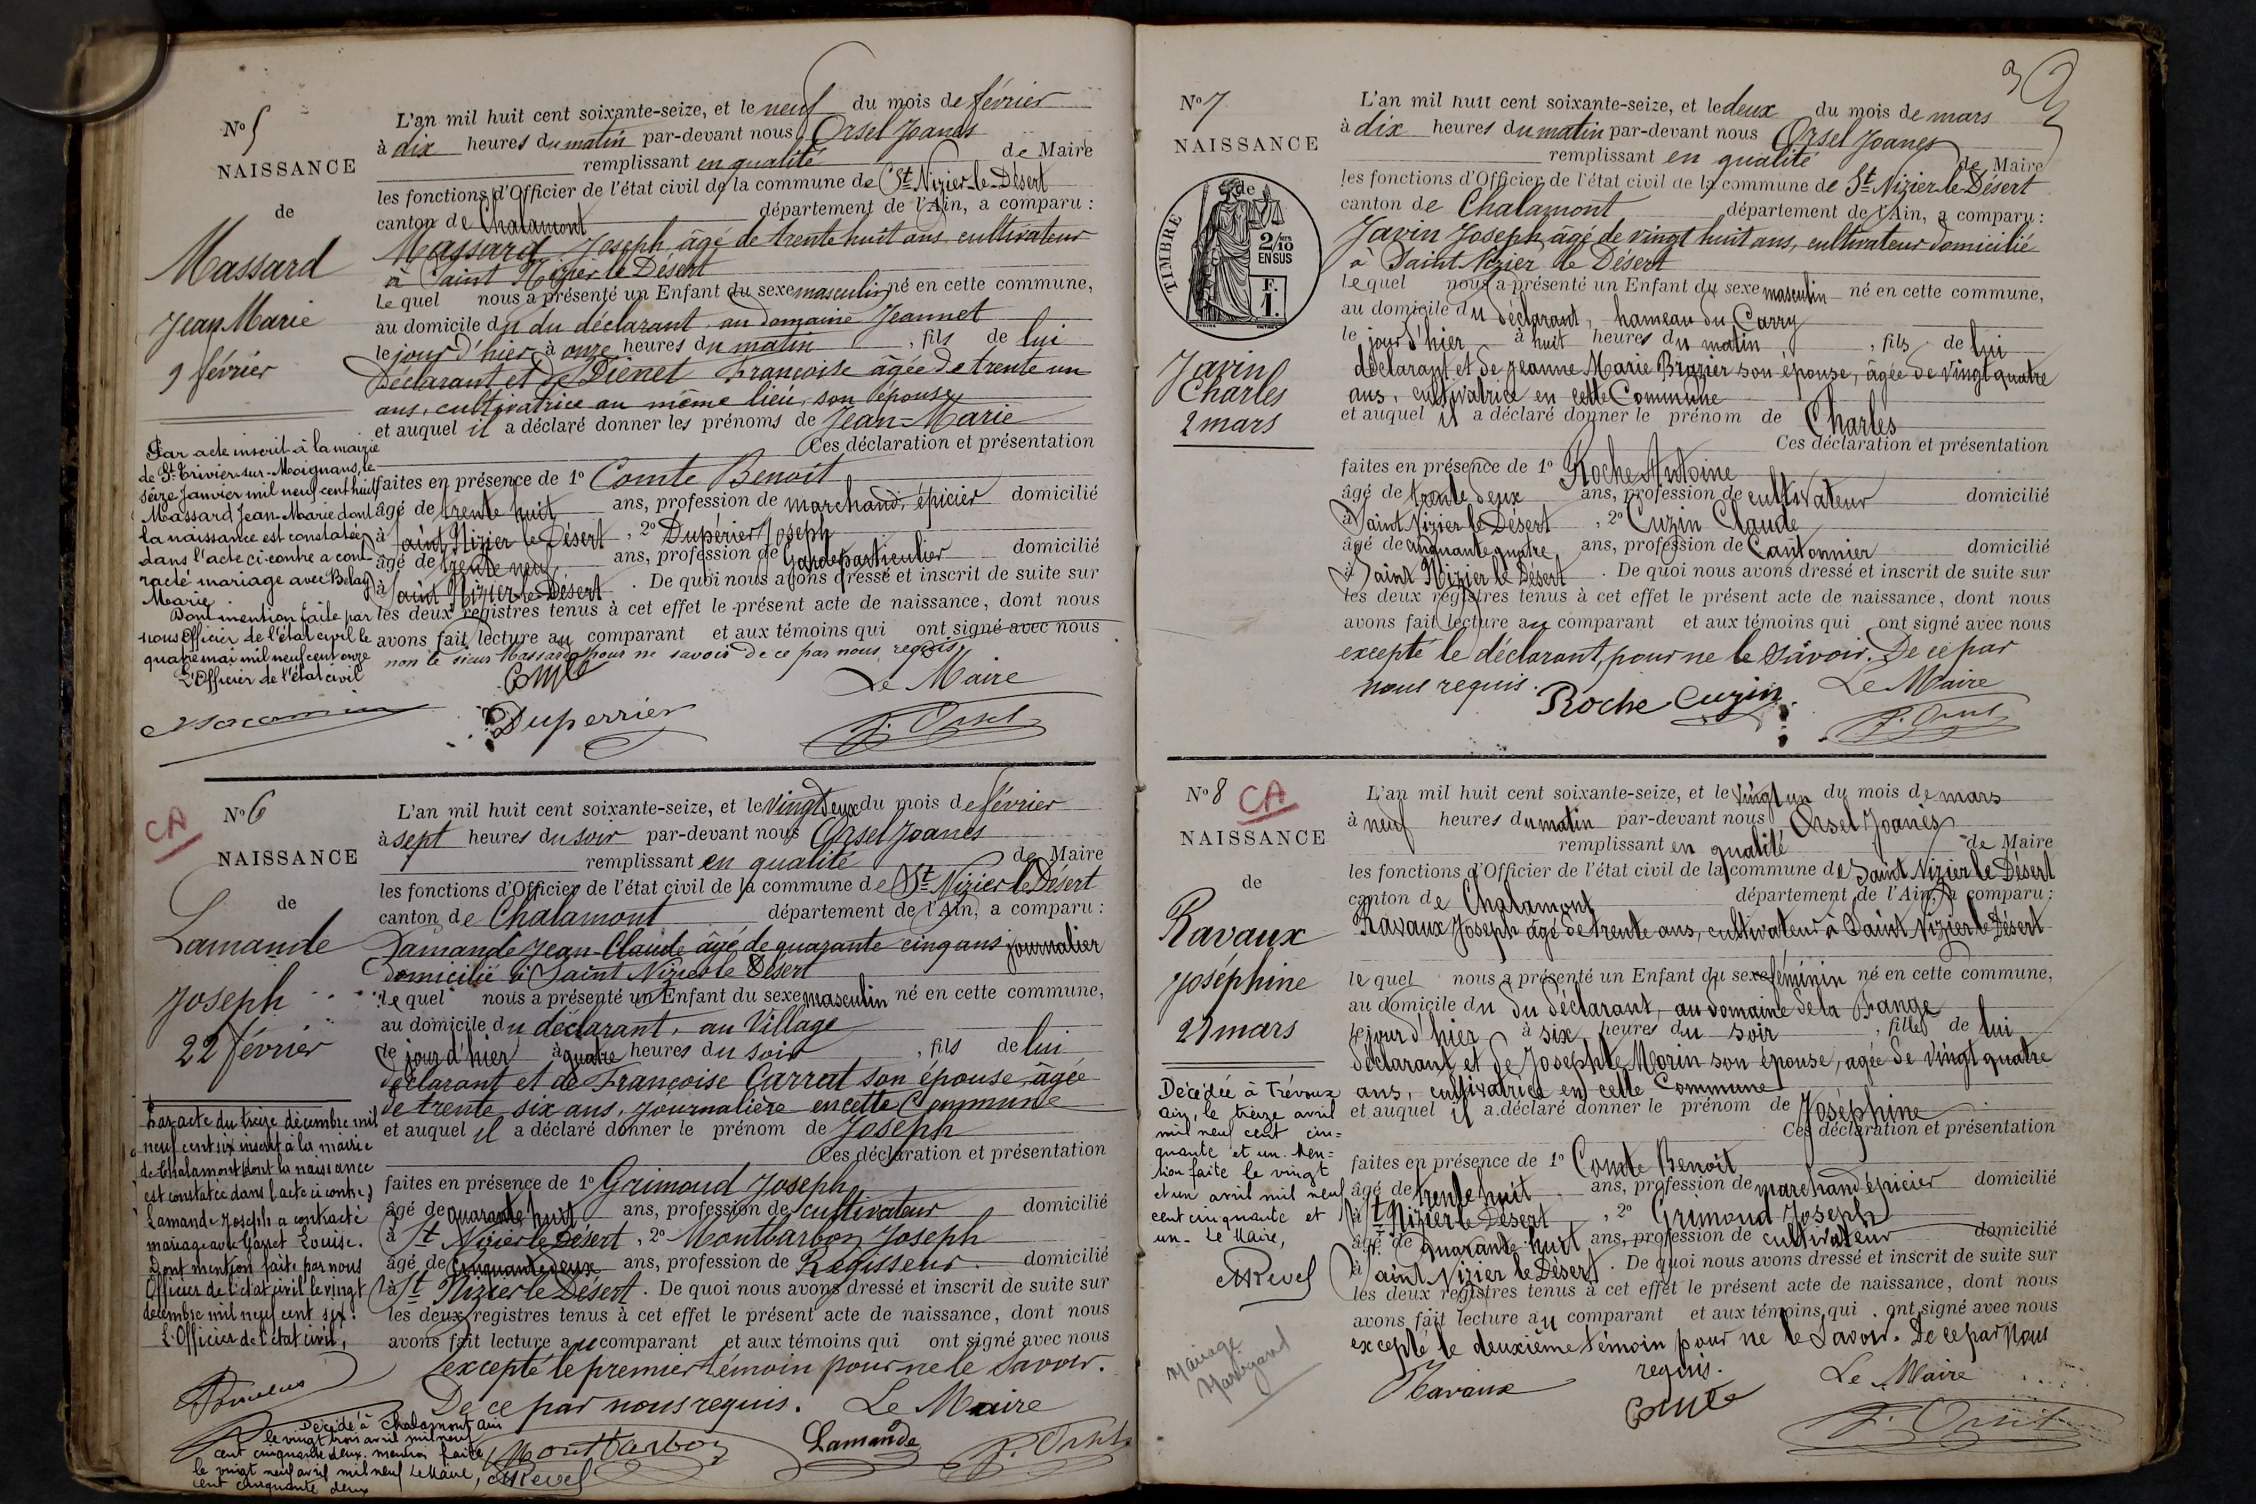 N° 5
NAISSANCE
de
Massard
Jean Marie
9 février
Par acte inscrit à la mairie
de St Trivier-sur-Moignans, le
seize Janvier mil neuf cent huit
Massard Jean Marie dont
la naissance est constatée
dans l'acte ci-contre a cont-
racté mariage avec
Marie
Dont mention faite par
nous Officier de l'état civil le
quatre mai mil neuf cent onze
L'Officier de l'état civil
L'an mil huit cent soixante-seize, et le neuf du mois de février
à dix heures du matin par-devant nous Orsel Joanès
remplissant en qualité de Maire
les fonctions d'Officier de l'état civil de la commune de St Nizier-le-Désert
canton de Chalamont département de l'Ain, a comparu :
Massard Joseph âgé de trente huit ans cultivateur
à Saint Nizier le Désert
le quel nous a présenté un Enfant du sexe masculin né en cette commune,
au domicile du du déclarant au domaine Jeannet
le jour d'hier à onze heures du matin , fils de lui
Déclarant et de Dienet Françoise âgée de trente un
ans, cultivatrice au même lieu, son épouse
et auquel il a déclaré donner les prénoms de Jean-Marie
Ces déclaration et présentation
faites en présence de 1° Comte Benoit
âgé de trente huit ans, profession de marchand épicier domicilié
à Saint Nizier le Désert , 2° Dupérier Joseph
âgé de trente neuf ans, profession de Garde particulier domicilié
à Saint Nizier le Désert . De quoi nous avons dressé et inscrit de suite sur
les deux registres tenus à cet effet le présent acte de naissance, dont nous
avons fait lecture au comparant et aux témoins qui ont signé avec nous
non le sieur Massard pour ne savoir de ce par nous requis
Comte Le Maire
Duperrier J. Orsel
N° 6
CA
NAISSANCE
de
Lamande
Joseph
22 février
Par acte du treize décembre mil
neuf cent six inscrit à la mairie
de Chalamont dont la naissance
est constatée dans l'acte ci contre,
Lamande Joseph a contracté
mariage avec Louise.
Dont mention faite par nous
Officier de l'état civil le vingt
décembre mil neuf cent six.
L'Officier de l'état civil,
Décédé à Chalamont Ain
le vingt trois avril mil neuf
cent cinquante deux. mention faite
le vingt neuf avril mil neuf Le Maire,
cent cinquante deux
L'an mil huit cent soixante-seize, et le vingt deux du mois de février
à sept heures du soir par-devant nous Orsel Joanès
remplissant en qualité de Maire
les fonctions d'Officier de l'état civil de la commune de St Nizier le Désert
canton de Chalamont département de l'Ain, a comparu :
Lamande Jean-Claude âgé de quarante cinq ans journalier
domicilié à Saint Nizier le Désert
le quel nous a présenté un Enfant du sexe masculin né en cette commune,
au domicile du déclarant, au Village
le jour d'hier à quatre heures du soir , fils de lui
déclarant et de Françoise Carrat son épouse âgée
de trente six ans, journalière en cette Commune
et auquel il a déclaré donner le prénom de Joseph
Ces déclaration et présentation
faites en présence de 1° Grimoud Joseph
âgé de quarante huit ans, profession de cultivateur domicilié
à St Nizier le Désert , 2° Montbarbon Joseph
âgé de cinquante deux ans, profession de Régisseur domicilié
à St Nizier le Désert . De quoi nous avons dressé et inscrit de suite sur
les deux registres tenus à cet effet le présent acte de naissance, dont nous
avons fait lecture au comparant et aux témoins qui ont signé avec nous
excepté le premier témoin pour ne le savoir.
De ce par nous requis. Le Maire
Montbarbon Lamande J. Orsel
N° 7
NAISSANCE
de
TIMBRE
2/10
EN SUS
F.
1.
Javin
Charles
2 mars
L'an mil huit cent soixante-seize, et le deux du mois de mars
à dix heures du matin par-devant nous Orsel Joanes
remplissant en qualité de Maire
les fonctions d'Officier de l'état civil de la commune de St Nizier le Désert
canton de Chalamont département de l'Ain, a comparu :
Javin Joseph âgé de vingt huit ans, cultivateur domicilié
à Saint Nizier le Désert
le quel nous a présenté un Enfant du sexe masculin né en cette commune,
au domicile du déclarant, hameau du Carry
le jour d'hier à huit heures du matin , fils de lui
déclarant et de Jeanne Marie Brazier son épouse, âgée de vingt quatre
ans, cultivatrice en cette Commune
et auquel il a déclaré donner le prénom de Charles
Ces déclaration et présentation
faites en présence de 1° Roche Antoine
âgé de trente deux ans, profession de cultivateur domicilié
à Saint Nizier le Désert , 2° Cuzin Claude
âgé de cinquante quatre ans, profession de Cantonnier domicilié
à Saint Nizier le Désert . De quoi nous avons dressé et inscrit de suite sur
les deux registres tenus à cet effet le présent acte de naissance, dont nous
avons fait lecture au comparant et aux témoins qui ont signé avec nous
excepté le déclarant, pour ne le savoir. De ce par
nous requis. Le Maire
Roche Cuzin J. Orsel
N° 8
CA
NAISSANCE
de
Ravaux
Joséphine
21 mars
Décédée à Trévoux
Ain, le treize avril
mil neuf cent cin=
quante et un. Men=
tion faite le vingt
et un avril mil neuf
cent cinquante et
un. Le Maire,
Mariage
L'an mil huit cent soixante-seize, et le vingt un du mois de mars
à neuf heures du matin par-devant nous Orsel Joanès
remplissant en qualité de Maire
les fonctions d'Officier de l'état civil de la commune de Saint Nizier le Désert
canton de Chalamont département de l'Ain, a comparu :
Ravaux Joseph âgé de trente ans, cultivateur à Saint Nizier le Désert
le quel nous a présenté un Enfant du sexe féminin né en cette commune,
au domicile du du déclarant, au domaine de la Frange
le jour d'hier à six heures du soir , fille de lui
déclarant et de Josephte Morin son épouse, agée de vingt quatre
ans, cultivatrice en cette Commune
et auquel il a déclaré donner le prénom de Joséphine
Ces déclaration et présentation
faites en présence de 1° Comte Benoit
âgé de trente huit ans, profession de marchand épicier domicilié
à St Nizier le Désert , 2° Grimoud Joseph
âgé de quarante huit ans, profession de cultivateur domicilié
à Saint Nizier le Désert . De quoi nous avons dressé et inscrit de suite sur
les deux registres tenus à cet effet le présent acte de naissance, dont nous
avons fait lecture au comparant et aux témoins qui ont signé avec nous
excepté le deuxième témoin pour ne le savoir. De ce par nous
requis.
Ravaux Comte Le Maire
J. Orsel